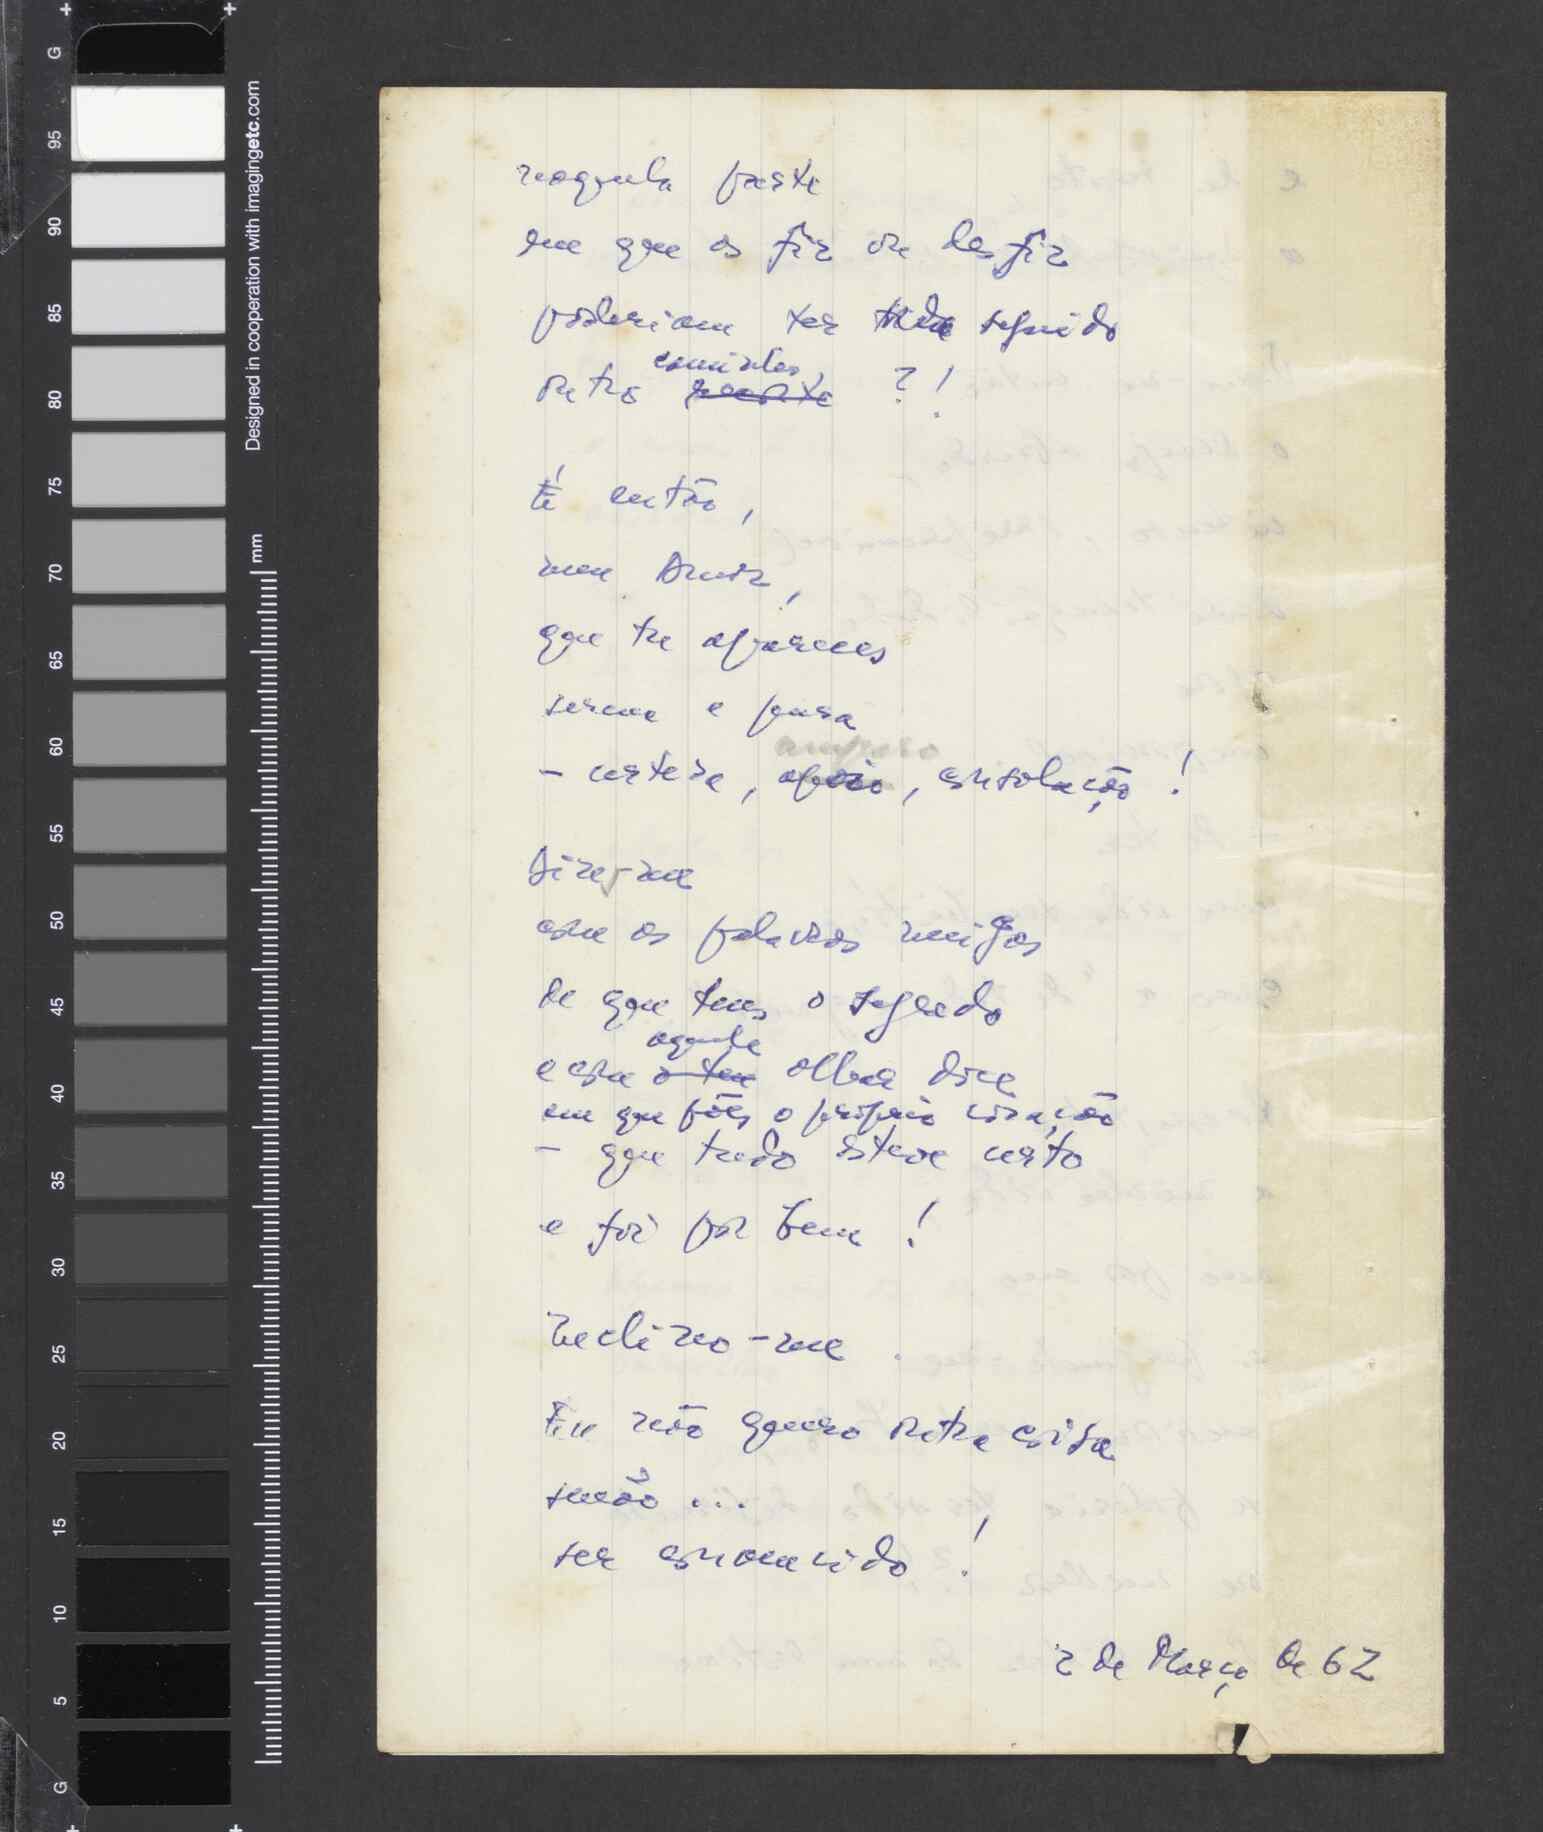 naquela parte
em que os fiz ou desfiz
poderiam ter seguido
caminho,
outro ?!
É então,
meu Amor,
que tu apareces
serena e pura
amparo
– certeza, apoio, consolação!
Dizes-me
com as palavras meigas
de que tens o segredo
aquele
e com o teu olhar doce
em que pões o próprio coração
– que tudo esteve certo
e foi por bem!
Reclino-me.
Eu não quero outra coisa
senão...
ser convencido!
2 de Março de 62
G
95
90
85
80
75
70
65
60
55
50
45
40
35
30
25
20
15
10
5
G
mm
Designed in cooperation with imagingetc.com